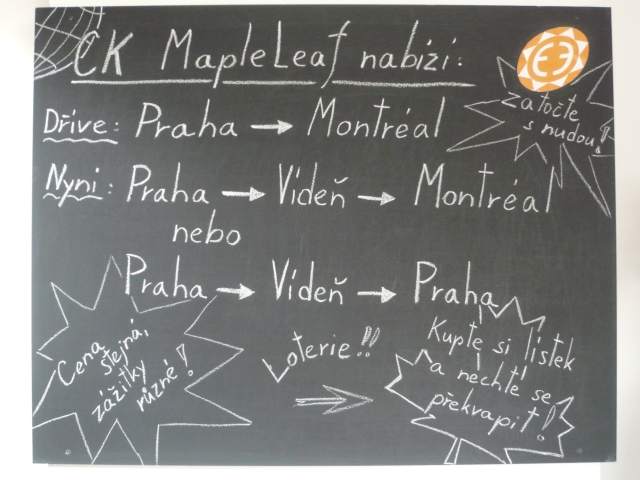 CK MapleLeaf nabízí:
Zatočte
s nudou!
Dříve: Praha → Montréal
Nyní: Praha → Vídeň → Montréal
nebo
Praha → Vídeň → Praha
Cena
stejná,
zážitky
různé!
Loterie!!
Kupte si lístek
a nechte se
překvapit!